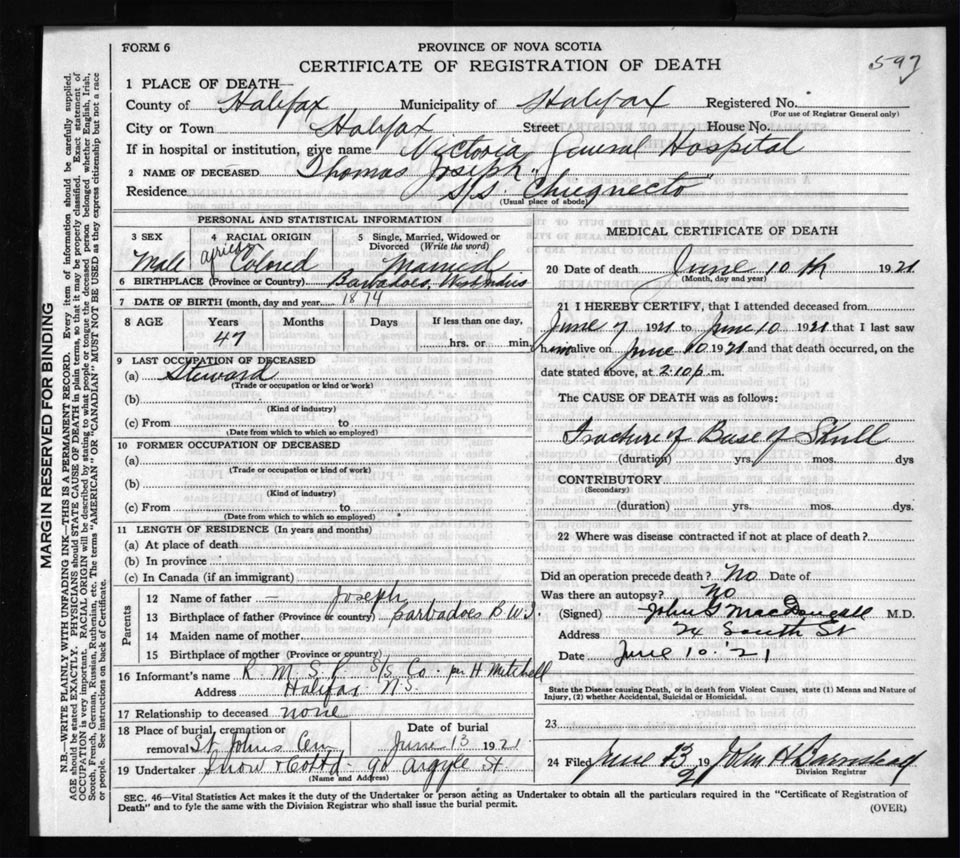 FORM 6
PROVINCE OF NOVA SCOTIA
CERTIFICATE OF REGISTRATION OF DEATH
597
1 PLACE OF DEATH—
County of Halifax Municipality of Halifax Registered No.
(For use of Registrar General only)
City or Town Halifax Street House No.
If in hospital or institution, give name Victoria General Hospital
2 NAME OF DECEASED Thomas Joseph
Residence S/S "Chignecto"
(Usual place of abode)
PERSONAL AND STATISTICAL INFORMATION
3 SEX
Male
4 RACIAL ORIGIN
african Colored
5 Single, Married, Widowed or Divorced (Write the word)
Married
6 BIRTHPLACE (Province or Country) Barbadoes, West Indies
7 DATE OF BIRTH (month, day and year) 1874
8 AGE Years Months Days If less than one day,
47 hrs. or min.
9 LAST OCCUPATION OF DECEASED
(a) Steward
(Trade or occupation or kind or work)
(b)
(Kind of industry)
(c) From to
(Date from which to which so employed)
10 FORMER OCCUPATION OF DECEASED
(a)
(Trade or occupation or kind or work)
(b)
(Kind of industry)
(c) From to
(Date from which to which so employed)
11 LENGTH OF RESIDENCE (In years and months)
(a) At place of death
(b) In province
(c) In Canada (if an immigrant)
Parents
12 Name of father — Joseph
13 Birthplace of father (Province or country) Barbadoes B.W.I.
14 Maiden name of mother
15 Birthplace of mother (Province or Country)
16 Informant's name R. M. S. P. S/S Co. per H Mitchell
Address Halifax N.S.
17 Relationship to deceased none
18 Place of burial, cremation or removal St Johns Cem
Date of burial June 13 1921
19 Undertaker Snow & Co Ltd 90 Argyle St
(Name and Address)
MEDICAL CERTIFICATE OF DEATH
20 Date of death June 10th 1921
(Month, day and year)
21 I HEREBY CERTIFY, that I attended deceased from
June 7 1921 to June 10 1921 that I last saw
him alive on June 10 1921 and that death occurred, on the
date stated above, at 2.10 p. m.
The CAUSE OF DEATH was as follows:
Fracture of Base of Skull
(duration) yrs. mos. dys
CONTRIBUTORY
(Secondary)
(duration) yrs. mos. dys.
22 Where was disease contracted if not at place of death?
Did an operation precede death? No Date of
Was there an autopsy? No
(Signed) John G MacDougall M.D.
Address 74 South St
Date June 10 '21
State the Disease causing Death, or in death from Violent Causes, state (1) Means and Nature of
Injury, (2) whether Accidental, Suicidal or Homicidal.
23
24 Filed June 13 1921 John H Barnstead
Division Registrar
SEC. 46—Vital Statistics Act makes it the duty of the Undertaker or person acting as Undertaker to obtain all the particulars required in the "Certificate of Registration of
Death" and to fyle the same with the Division Registrar who shall issue the burial permit.
(OVER)
MARGIN RESERVED FOR BINDING
N.B.—WRITE PLAINLY WITH UNFADING INK—THIS IS A PERMANENT RECORD. Every item of information should be carefully supplied.
AGE should be stated EXACTLY. PHYSICIANS should STATE CAUSE OF DEATH in plain terms, so that it may be properly classified. Exact statement of
OCCUPATION is very important. RACIAL ORIGIN will be described by stating to what people or tongue the deceased person belonged whether English, Irish,
Scotch, French, German, Russian, Ruthenian, etc. The terms "AMERICAN" or "CANADIAN" MUST NOT BE USED as they express citizenship but not a race
or people. See instructions on back of Certificate.